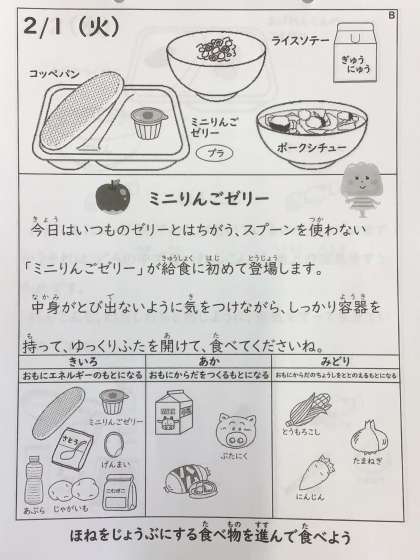 B
2/1（火）
ライスソテー
ぎゅう
にゅう
コッペパン
ミニりんご
ゼリー
プラ
ポークシチュー
ミニりんごゼリー
今日はいつものゼリーとはちがう、スプーンを使わない
「ミニりんごゼリー」が給食に初めて登場します。
中身がとび出ないように気をつけながら、しっかり容器を
持って、ゆっくりふたを開けて、食べてくださいね。
きいろ
あか
みどり
おもにエネルギーのもとになる
おもにからだをつくるもとになる
おもにからだのちょうしをととのえるもとになる
ミニりんごゼリー
さとう
げんまい
あぶら
じゃがいも
こむぎこ
ぶたにく
とうもろこし
たまねぎ
にんじん
ほねをじょうぶにする食べ物を進んで食べよう